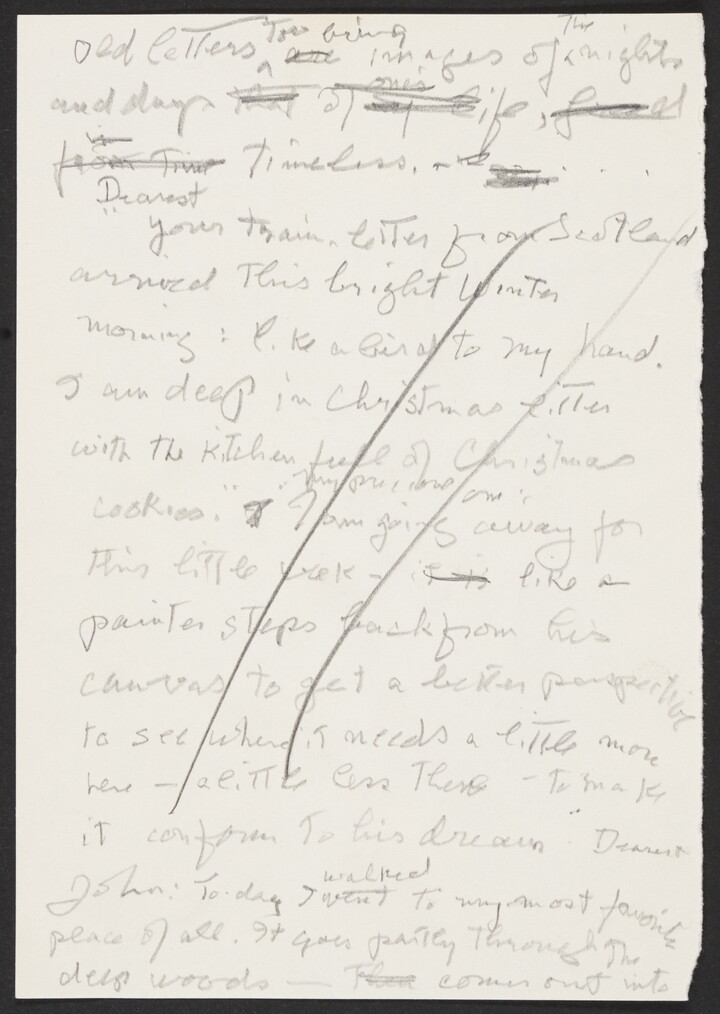 old letters Too being are images of The nights
and days that of one's my life, fused
from Time Timeless. -
Dearest
" your train-letter from Scotland
arrived This bright Winter
morning: like a bird to my hand.
I am deep in Christmas litter
with the kitchen full of Christmas
cookies." "my precious one:
I am going away for
This little week - it is like a
painter steps back from his
canvas to get a better perspective
to see where it needs a little more
here - a little less There - to make
it conform To his dream " Dearest
John: To-day I walked went to my most favorite
place of all. It goes partly Through The
deep woods - Then comes out into